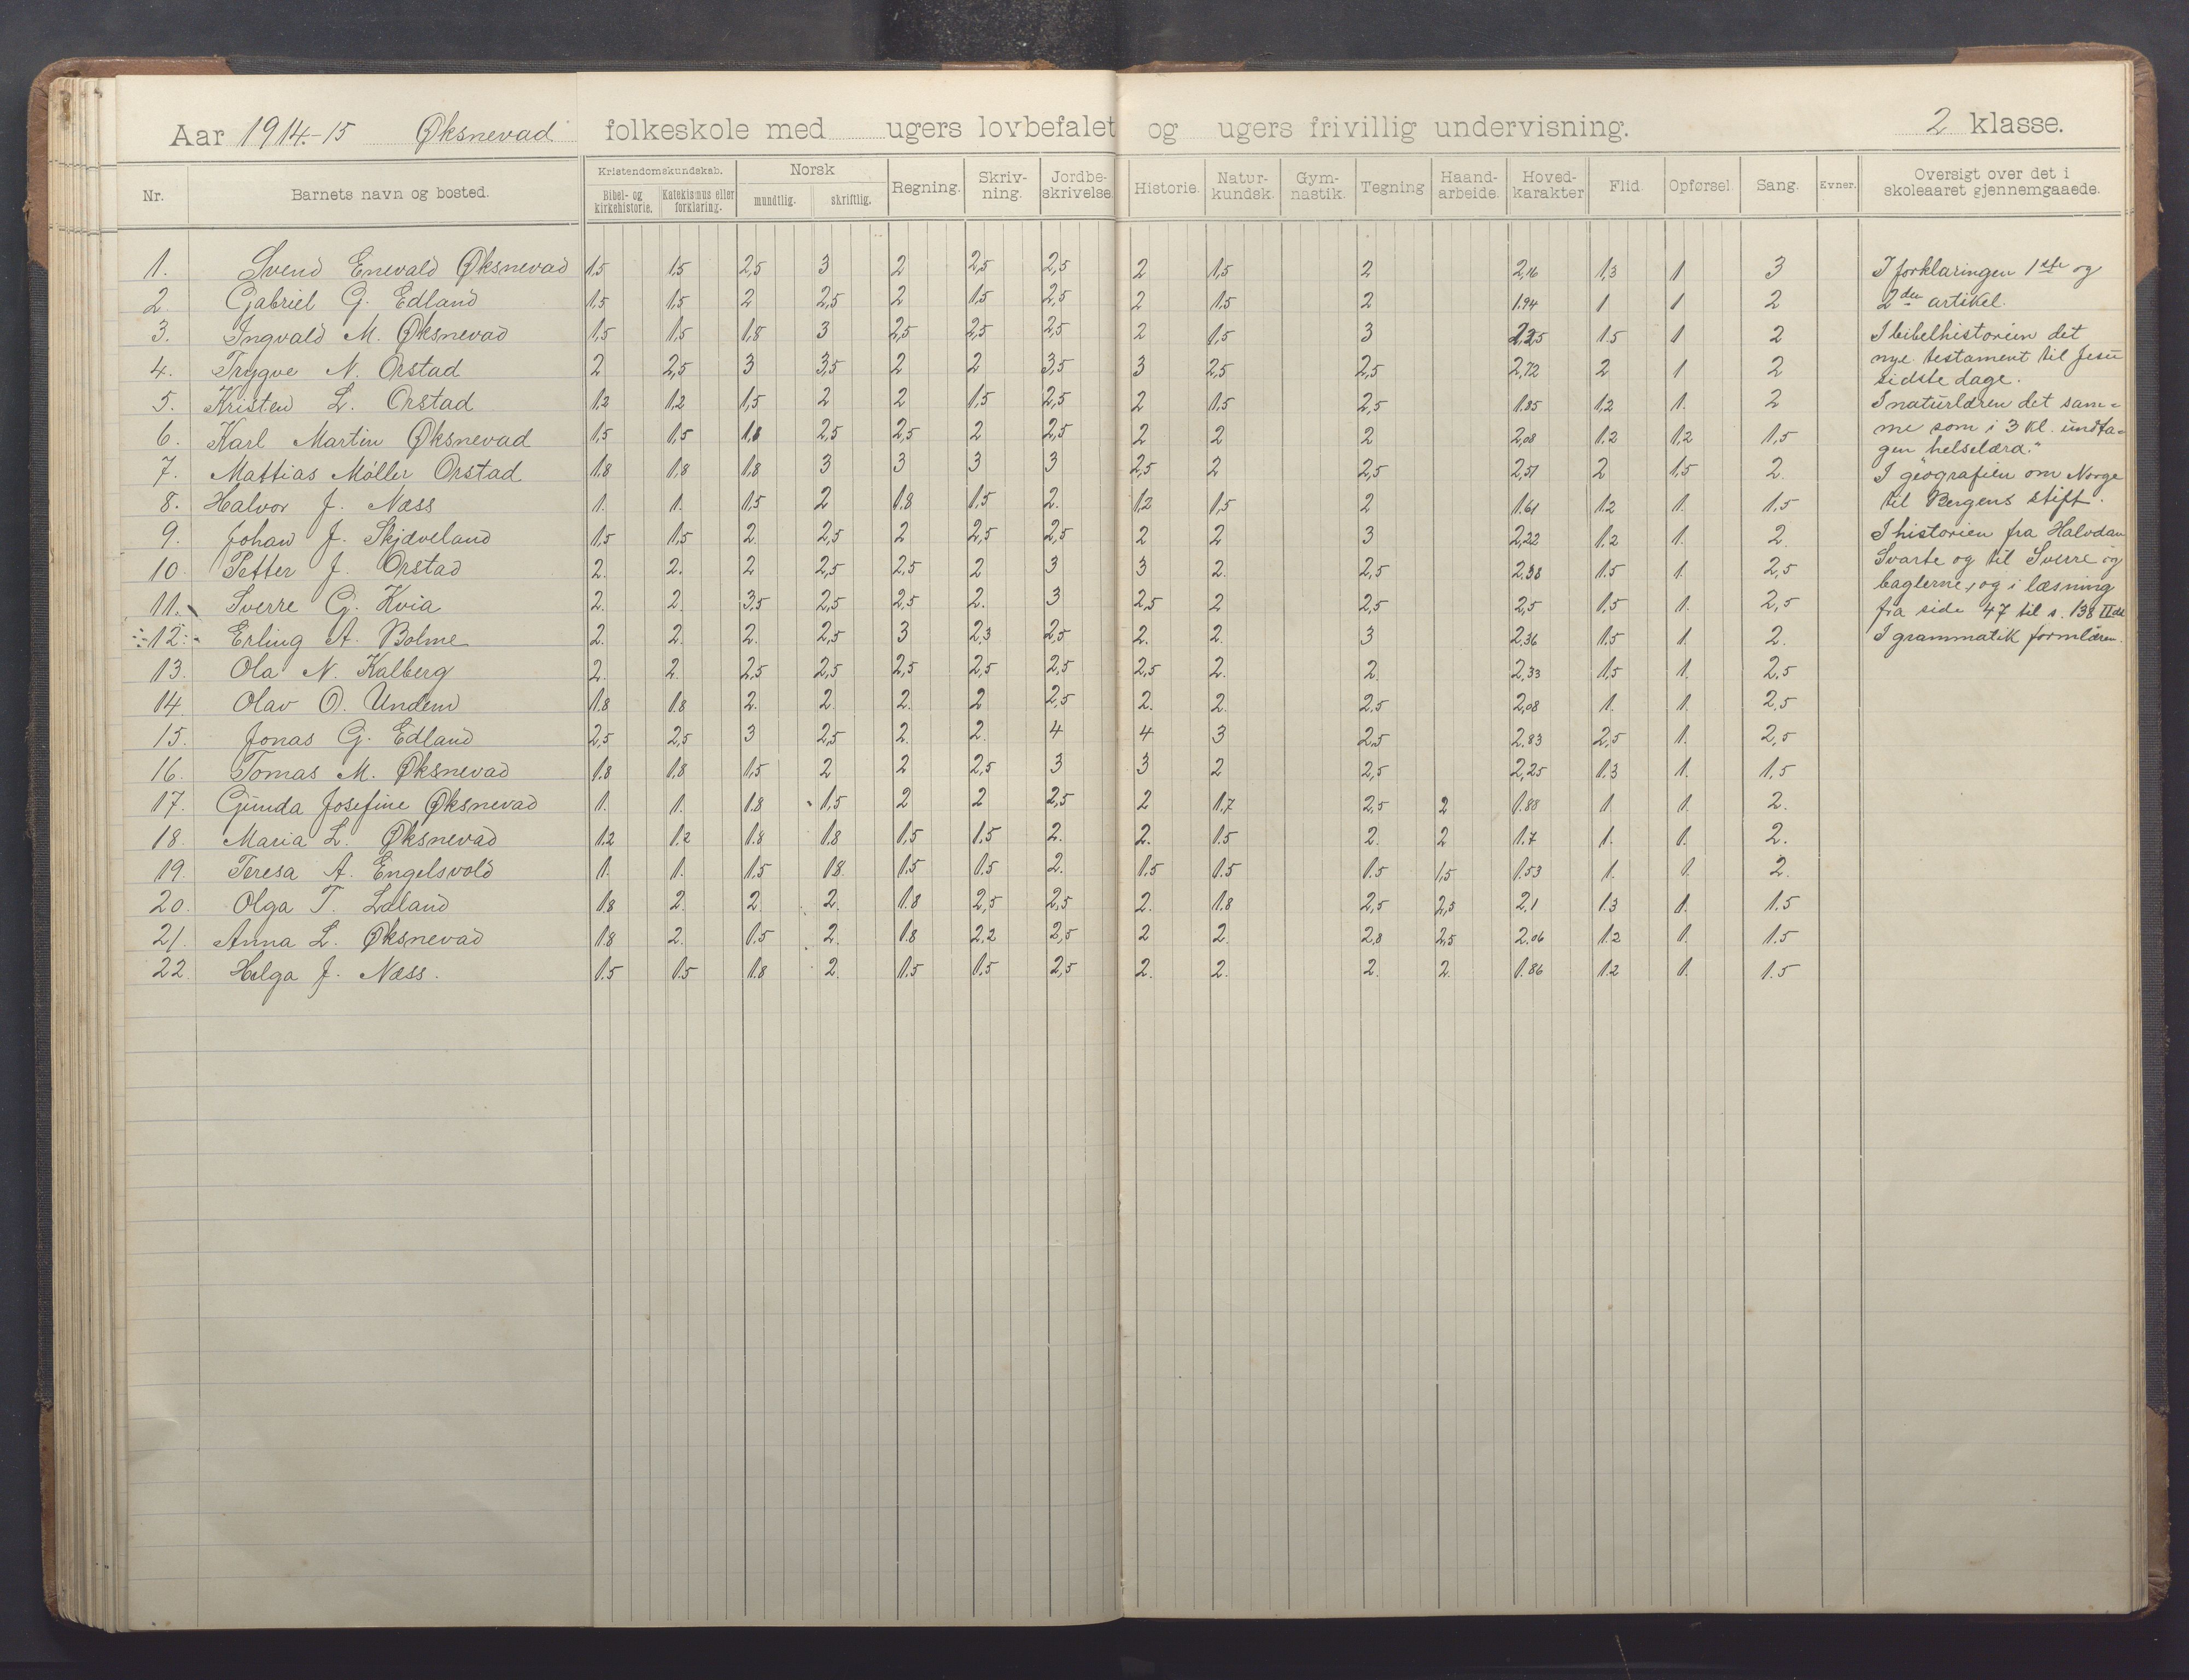 Aar 1914-15 Øksnevad folkeskole med ugers lovbefalet og ugers frivillig undervisning. 2 klasse.
Nr. Barnets navn og bosted. Kristendomskundskab. Bibel- og kirkehistorie. Katekismus eller forklaring. Norsk mundtlig. skriftlig. Regning. Skriv-ning. Jordbe-skrivelse. Historie. Natur-kundsk. Gym-nastik. Tegning Haand-arbeide. Hoved-karakter Flid. Opførsel. Sang. Evner. Oversigt over det i skoleaaret gjennemgaaede.
1. Svend Enevald Øksnevad 1,5 1,5 2,5 3 2 2,5 2,5 2 1,5 2 2,16 1,3 1 3
2. Gabriel G. Edland 1,5 1,5 2 2,5 2 1,5 2,5 2 1,5 2 1.94 1 1 2
3. Ingvald M. Øksnevad 1,5 1,5 1,8 3 2,5 2,5 2,5 2 1,5 3 1.5 1 2
4. Trygve N. Orstad 2 2,5 3 3,5 2 2 3,5 3 2,5 2,5 2,72 2 1 2
5. Kristen L. Orstad 1,2 1,2 1,5 2 2 1,5 2,5 2 1,5 2,5 1.85 1,2 1. 2
6. Karl Martin Øksnevad 1,5 1,5 1,8 2,5 2,5 2 2,5 2 2 2 2,08 1.2 1,2 1,5
7. Mattias Møller Orstad 1.8 1.8 1.8 3 3 3 3 2,5 2 2,5 2,51 2 1,5 2.
8. Halvor J. Næss 1. 1. 1,5 2 1.8 1,5 2. 1,2 1,5 2 1.61 1.2 1. 1,5
9. Johan J. Skjæveland 1,5 1,5 2. 2,5 2 2,5 2,5 2 2 3 2,22 1.2 1. 2.
10. Petter J. Orstad 2. 2. 2 2,5 2,5 2 3 3 2. 2,5 2.38 1.5 1. 2,5
11. Sverre G. Kvia 2. 2. 3,5 2,5 2,5 2. 3 2,5 2 2,5 2,5 1,5 1. 2,5
12. Erling A. Bolme 2. 2. 2. 2,5 3 2,3 2,5 2. 2. 3 2.36 1.5 1. 2.
13. Ola N. Kalberg 2. 2. 2,5 2,5 2,5 2,5 2,5 2,5 2. 2. 2,33 1,5 1. 2,5
14. Olav O. Undem 1.8 1.8 2. 2. 2. 2 2,5 2. 2. 2,5 2,08 1. 1. 2,5
15. Jonas G. Edland 2,5 2,5 3 2,5 2. 2. 4 4 3 2,5 2.83 2,5 1. 2,5
16. Tomas M. Øksnevad 1.8 1,8 1,5 2 2 2,5 3 3 2 2,5 2,25 1.3 1. 1,5
17. Gunda Josefine Øksnevad 1. 1. 1.8 1,5 2 2 2,5 2 1,7 2,5 2 1.88 1 1. 2.
18. Maria L. Øksnevad 1.2 1.2 1.8 1.8 1,5 1,5 2. 2. 1.5 2. 2 1.7 1. 1. 2.
19. Teresa A. Engelsvold 1. 1. 1.5 1.8 1.5 1.5 2. 1.5 1.5 1.5 1,5 1.53 1. 1. 2.
20. Olga T. Edland 1.8 2. 2. 2. 1.8 2,5 2,5 2. 1.8 2,5 2,5 2,1 1.3 1. 1.5
21. Anna L. Øksnevad 1.8 2. 1.5 2. 1.8 2,2 2,5 2 2. 2,8 2,5 2.06 1.2 1. 1.5
22. Helga J. Næss. 1.5 1.5 1.8 2. 1.5 1.5 2,5 2. 2. 2. 2. 1.86 1.2 1. 1.5
I forklaringen 1ste og
2den artikel.
I bibelhistorien det
nye testament til Jesu
sidste dage.
I naturlæren det sam-
me som i 3 kl. undta-
gen "helselæra."
I geografien om Norge
til Bergens stift.
I historien fra Halvdan
Svarte og til Sverre og
baglerne, og i læsning
fra side 47 til s. 138 II del
I grammatik formlæren.